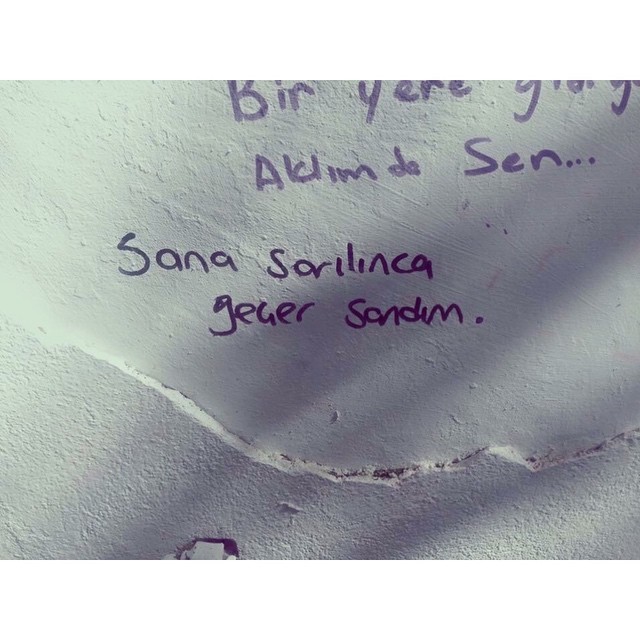 Bir yere
Aklımda Sen...
Sana sarılınca
geçer sandım.